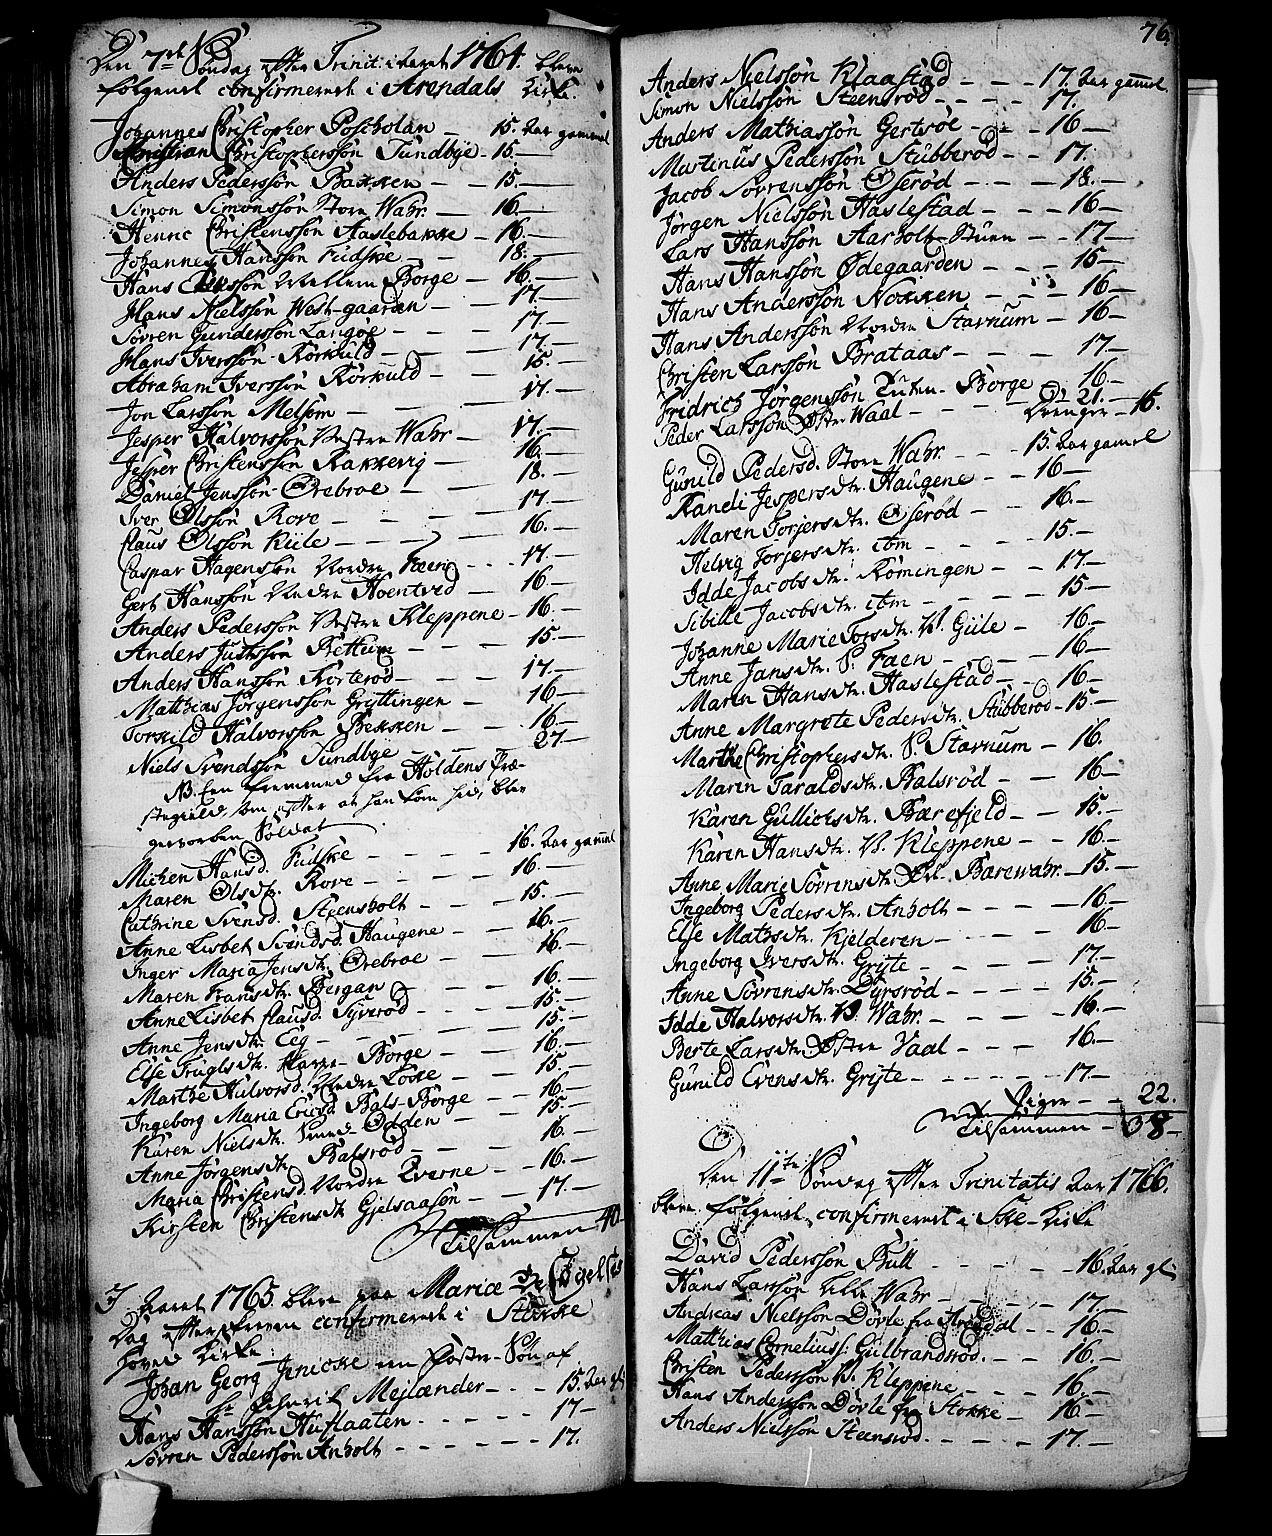 Den 7de Søndag efter Trinit: i Aaret 1764. bleve
følgende confirmerede i Arendals Kirke.
Johannes Christopher Postholan — 15. Aar gammel
Christian Christophersøn Sundbye — 15 —
Anders Pedersøn Bakken — 15 —
Simon Simonssøn Store Wahr — 16 —
Henric Christenssøn Aaslebakke — 16 —
Johannes Hanssøn Fudske — 18 —
Hans Mellem Borge — 16 —
Hans Nielssøn West-gaarden — 17 —
Sövren Gunderssøn Langøe — 17 —
Hans Iverssøn Rörkuld — 17 —
Abraham Iverssøn Rörkuld — 15 —
Jon Larssøn Melsom — 17 —
Jesper Halvorssøn Vestre Wahr — 17 —
Jesper Christenssøn Rakkevig — 16 —
Daniel Jenssøn Orebroe — 18 —
Iver Olssøn Rove — 17 —
Claus Olssøn Kiile — 16 —
Caspar Hagenssøn Nordre Faen — 17 —
Gert Hanssøn Hoentved — 16 —
Anders Pederssøn Vestre Kleppene — 16 —
Anders Justssøn Rettum — 15 —
Anders Hanssøn Korterød — 17 —
Matthias Jörgenssøn Gryttingen — 16 —
Torkild Halvorssøn Bekken — 16 —
Niels Svendssøn Sundbye — 27 —
NB. Een fremmed fra Holdens Præ-
stegield, som efter at han kom hid, blev
gevorben Soldat
Michen Hansd. Fudske — 16. Aar gammel
Maren Olsdtr. Rove — 16 —
Cathrine Svensd. Steensholt — 15 —
Anne Lisbet Svendsd. Haugene — 16 —
Inger Maria Jensdtr. Orebroe — 16 —
Maren Fransdtr. Bergan — 16 —
Anne Lisbet Clausd. Syverød — 15 —
Anne Jensdtr. Eeg — 15 —
Else Truglsdtr. Harre-Borge — 16 —
Marthe Halvorsd. Nedre Löske — 15 —
Ingeborg Maria Ericsd. Bals-Borge — 16 —
Karen Nielsdtr. Odden — 15 —
Anne Jörgensdtr. Balsrød — 16 —
Maria Christensd. Nordre Qverne — 16 —
Kirsten Christensdtr. Gjelsaasen — 17 —
Tilsammen 40
I Aaret 1765. bleve paa Mariæ Besögelses
Dag efterskreven confirmerede i Stokke
Hoved Kirke:
Johan Georg Jenicke en Foster-Søn af
Hr. Henric Mejlænder — 15. Aar gl
Hans Hanssøn Huflaaten — 17 —
Sövren Pederssøn Anholt — 17.
76.
Anders Nielssøn Klaastad — 17. Aar gammel.
Simon Nielssøn Steensrød — 17.
Anders Mathiassøn Gertsøe — 16 —
Martinus Pederssøn Stubberød — 17.
Jacob Sövrenssøn Oserød — 18. —
Jörgen Nielssøn Haslestad — 16 —
Lars Hanssøn Aarholt-Stuen — 17 —
Hans Hanssøn Ödegaarden — 15 —
Hans Anderssøn Nokken — 16 —
Hans Anderssøn Nordre Starnum — 16 —
Christen Larssøn Brataas — 17 —
Fridrich Jörgenssøn Borge — 16 —
Peder Larssøn Östre Waal — 21. —
Drenger — 16.
Gunild Pedersd. Store Wahr — 15. Aar gammel
Randi Jespersdtr. Haugene — 16 —
Maren Torjersdtr. Oserød — 16. —
Helvig Torjersdtr. ibm — 15. —
Idde Jacobsdtr. Römingen — 17. —
Sibille Jacobsdtr. ibm — 15 —
Johanne Marie Torsdtr. V. Giile — 16. —
Anne Jansdtr. S. Faen — 16 —
Maren Hansdtr. Haslestad — 16 —
Anne Margrete Pedersdtr. Stubberød — 15 —
Marthe Christophersdtr. S. Starnum — 16.
Maren Taraldsdtr. Balsrød — 16 —
Karen Gullichsdtr. Bærefjeld — 15. —
Karen Hansdtr. V. Kleppene — 16 —
Anne Marie Sövrensdtr. Barewahr — 15. —
Ingeborg Pedersdtr. Anholt — 16 —
Else Mathsdtr. Kjelderen — 16 —
Ingeborg Iversdtr. Gryte — 17. —
Anne Sövrensdtr. Dyrsrød — 15. —
Idde Halvorsdtr. V. Wahr. — 16. —
Berte Larsdtr. Östre Vaal — 16. —
Gunild Evensdtr. Gryte — 17. —
Piger — 22.
Tilsammen — 38 —
Den 11te Søndag efter Trinitatis Aar 1766.
bleve følgende confirmerede i Skee-Kirke
David Pederssøn Bull — 16. Aar gl
Hans Larssøn Lille Wahr — 17. —
Andreas Nielssøn Dövle fra Arendal — 16 —
Matthias Corneliuss: Gulbrandsrød. — 16. —
Christen Pederssøn V. Kleppene — 16. —
Hans Anderssøn Dövle fra Stokke — 16 —
Anders Nielssøn Steensrød — 17. —